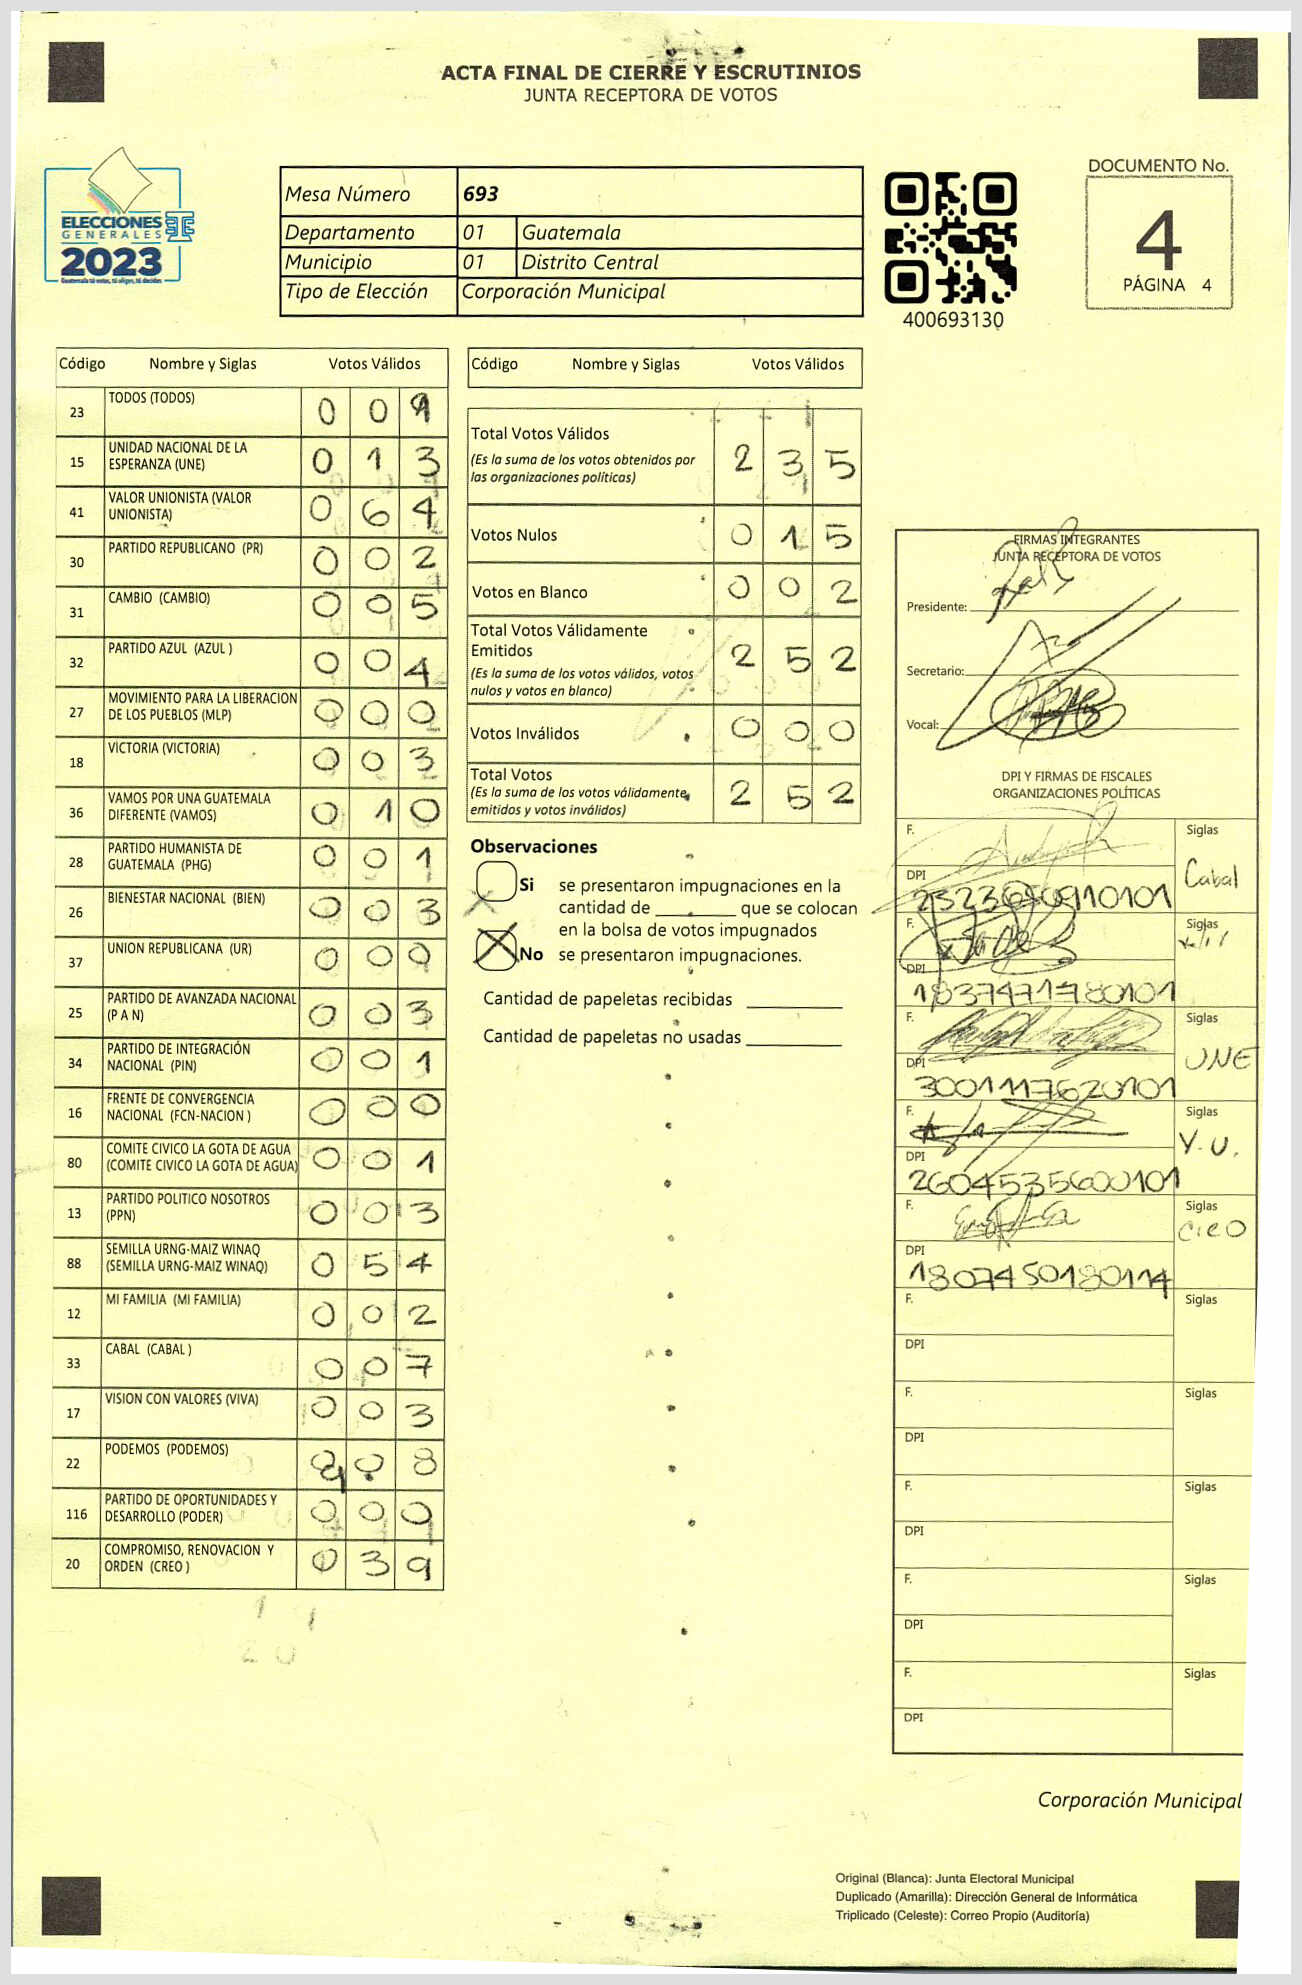 ACTA FINAL DE CIERRE Y ESCRUTINIOS
JUNTA RECEPTORA DE VOTOS
ELECCIONES
GENERALES
2023
Guatemala tú votas, tú eliges, tú decides
Mesa Número 693
Departamento 01 Guatemala
Municipio 01 Distrito Central
Tipo de Elección Corporación Municipal
400693130
DOCUMENTO No.
4
PÁGINA 4
Código Nombre y Siglas Votos Válidos
23 TODOS (TODOS) 0 0 9
15 UNIDAD NACIONAL DE LA
ESPERANZA (UNE) 0 1 3
41 VALOR UNIONISTA (VALOR
UNIONISTA) 0 6 4
30 PARTIDO REPUBLICANO (PR) 0 0 2
31 CAMBIO (CAMBIO) 0 0 5
32 PARTIDO AZUL (AZUL ) 0 0 4
27 MOVIMIENTO PARA LA LIBERACION
DE LOS PUEBLOS (MLP) 0 0 0
18 VICTORIA (VICTORIA) 0 0 3
36 VAMOS POR UNA GUATEMALA
DIFERENTE (VAMOS) 0 1 0
28 PARTIDO HUMANISTA DE
GUATEMALA (PHG) 0 0 1
26 BIENESTAR NACIONAL (BIEN) 0 0 3
37 UNION REPUBLICANA (UR) 0 0 0
25 PARTIDO DE AVANZADA NACIONAL
(P A N) 0 0 3
34 PARTIDO DE INTEGRACIÓN
NACIONAL (PIN) 0 0 1
16 FRENTE DE CONVERGENCIA
NACIONAL (FCN-NACION ) 0 0 0
80 COMITE CIVICO LA GOTA DE AGUA
(COMITE CIVICO LA GOTA DE AGUA) 0 0 1
13 PARTIDO POLITICO NOSOTROS
(PPN) 0 0 3
88 SEMILLA URNG-MAIZ WINAQ
(SEMILLA URNG-MAIZ WINAQ) 0 5 4
12 MI FAMILIA (MI FAMILIA) 0 0 2
33 CABAL (CABAL ) 0 0 7
17 VISION CON VALORES (VIVA) 0 0 3
22 PODEMOS (PODEMOS) 0 0 8
116 PARTIDO DE OPORTUNIDADES Y
DESARROLLO (PODER) 0 0 0
20 COMPROMISO, RENOVACION Y
ORDEN (CREO ) 0 3 9
Código Nombre y Siglas Votos Válidos
Total Votos Válidos
(Es la suma de los votos obtenidos por
las organizaciones políticas) 2 3 5
Votos Nulos 0 1 5
Votos en Blanco 0 0 2
Total Votos Válidamente
Emitidos
(Es la suma de los votos válidos, votos
nulos y votos en blanco) 2 5 2
Votos Inválidos 0 0 0
Total Votos
(Es la suma de los votos válidamente
emitidos y votos inválidos) 2 5 2
Observaciones
Si se presentaron impugnaciones en la
cantidad de ________ que se colocan
en la bolsa de votos impugnados
No se presentaron impugnaciones.
Cantidad de papeletas recibidas
Cantidad de papeletas no usadas
FIRMAS INTEGRANTES
JUNTA RECEPTORA DE VOTOS
Presidente:
Secretario:
Vocal:
DPI Y FIRMAS DE FISCALES
ORGANIZACIONES POLÍTICAS
F. Siglas
Cabal
DPI
2323650910101
F. Siglas
DPI
1837471780101
F. Siglas
UNE
DPI
3001117620101
F. Siglas
V.U.
DPI
2604535600101
F. Siglas
CREO
DPI
1807450180114
F. Siglas
DPI
F. Siglas
DPI
F. Siglas
DPI
F. Siglas
DPI
F. Siglas
DPI
Corporación Municipal
Original (Blanca): Junta Electoral Municipal
Duplicado (Amarilla): Dirección General de Informática
Triplicado (Celeste): Correo Propio (Auditoría)